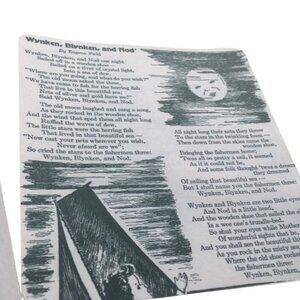 Wynken, Blynken, and Nod
By Eugene Field
Wynken, Blynken, and Nod one night
Sailed off in a wooden shoe—
Sailed on a river of crystal light,
Into a sea of dew.
"Where are you going, and what do you wish?"
The old moon asked the three.
"We have come to fish for the herring fish
That live in this beautiful sea;
Nets of silver and gold have we!"
Said Wynken, Blynken, and Nod.
The old moon laughed and sang a song,
As they rocked in the wooden shoe,
And the wind that sped them all night long
Ruffled the waves of dew.
The little stars were the herring fish
That lived in that beautiful sea—
"Now cast your nets wherever you wish,
Never afeard are we";
So cried the stars to the fishermen three:
Wynken, Blynken, and Nod.
All night long their nets they threw
To the stars in the twinkling
Then down from the skies came the
wooden shoe,
Bringing the fishermen home;
'Twas all so pretty a sail, it seemed
As if it could not be,
And some folk thought 'twas a dream
they dreamed
Of sailing that beautiful sea—
But I shall name you the fishermen three:
Wynken, Blynken, and Nod.
Wynken and Blynken are two little eyes
And Nod is a little head,
And the wooden shoe that sailed the
Is a wee one's trundle-bed.
So shut your eyes while Mother
Of wonderful sights that be,
And you shall see the beautiful
As you rock in the misty
Where the old shoe rocked
the fishermen three:
Wynken, Blynken,